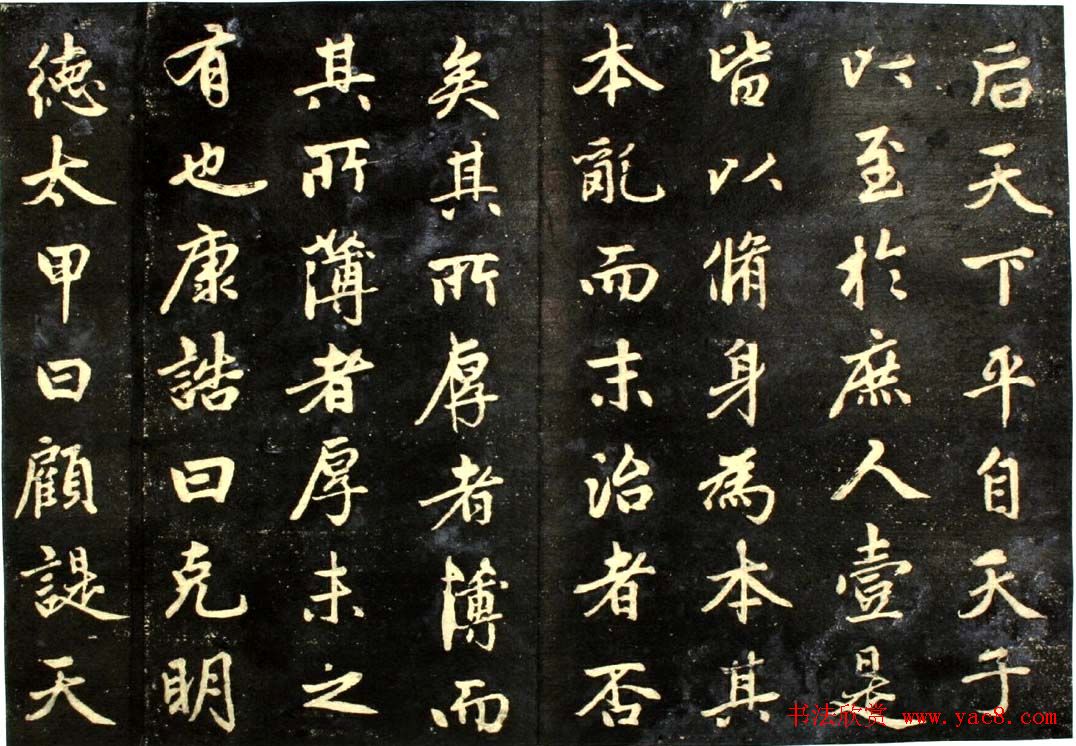 后天下平自天子
以至於庶人壹是
皆以脩身為本其
本亂而末治者否
矣其所厚者薄而
其所薄者厚未之
有也康誥曰克明
德太甲曰顧諟天
书法欣赏 www.yac8.com